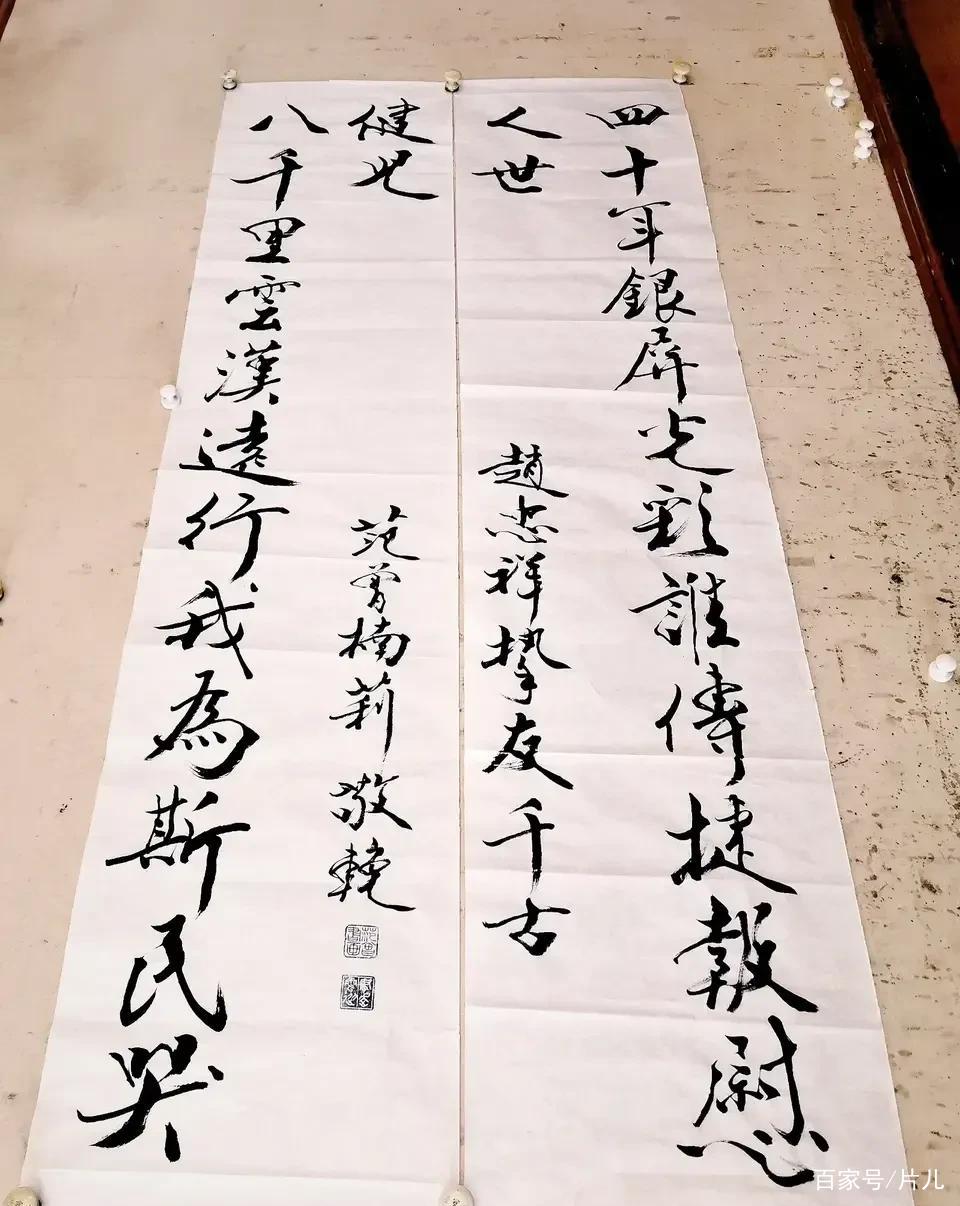 四十年銀屏光彩誰傳捷報慰
人世
趙忠祥摯友千古
八千里雲漢遠行我為斯民哭
健兒
范曾楠莉敬輓
百家号/片儿